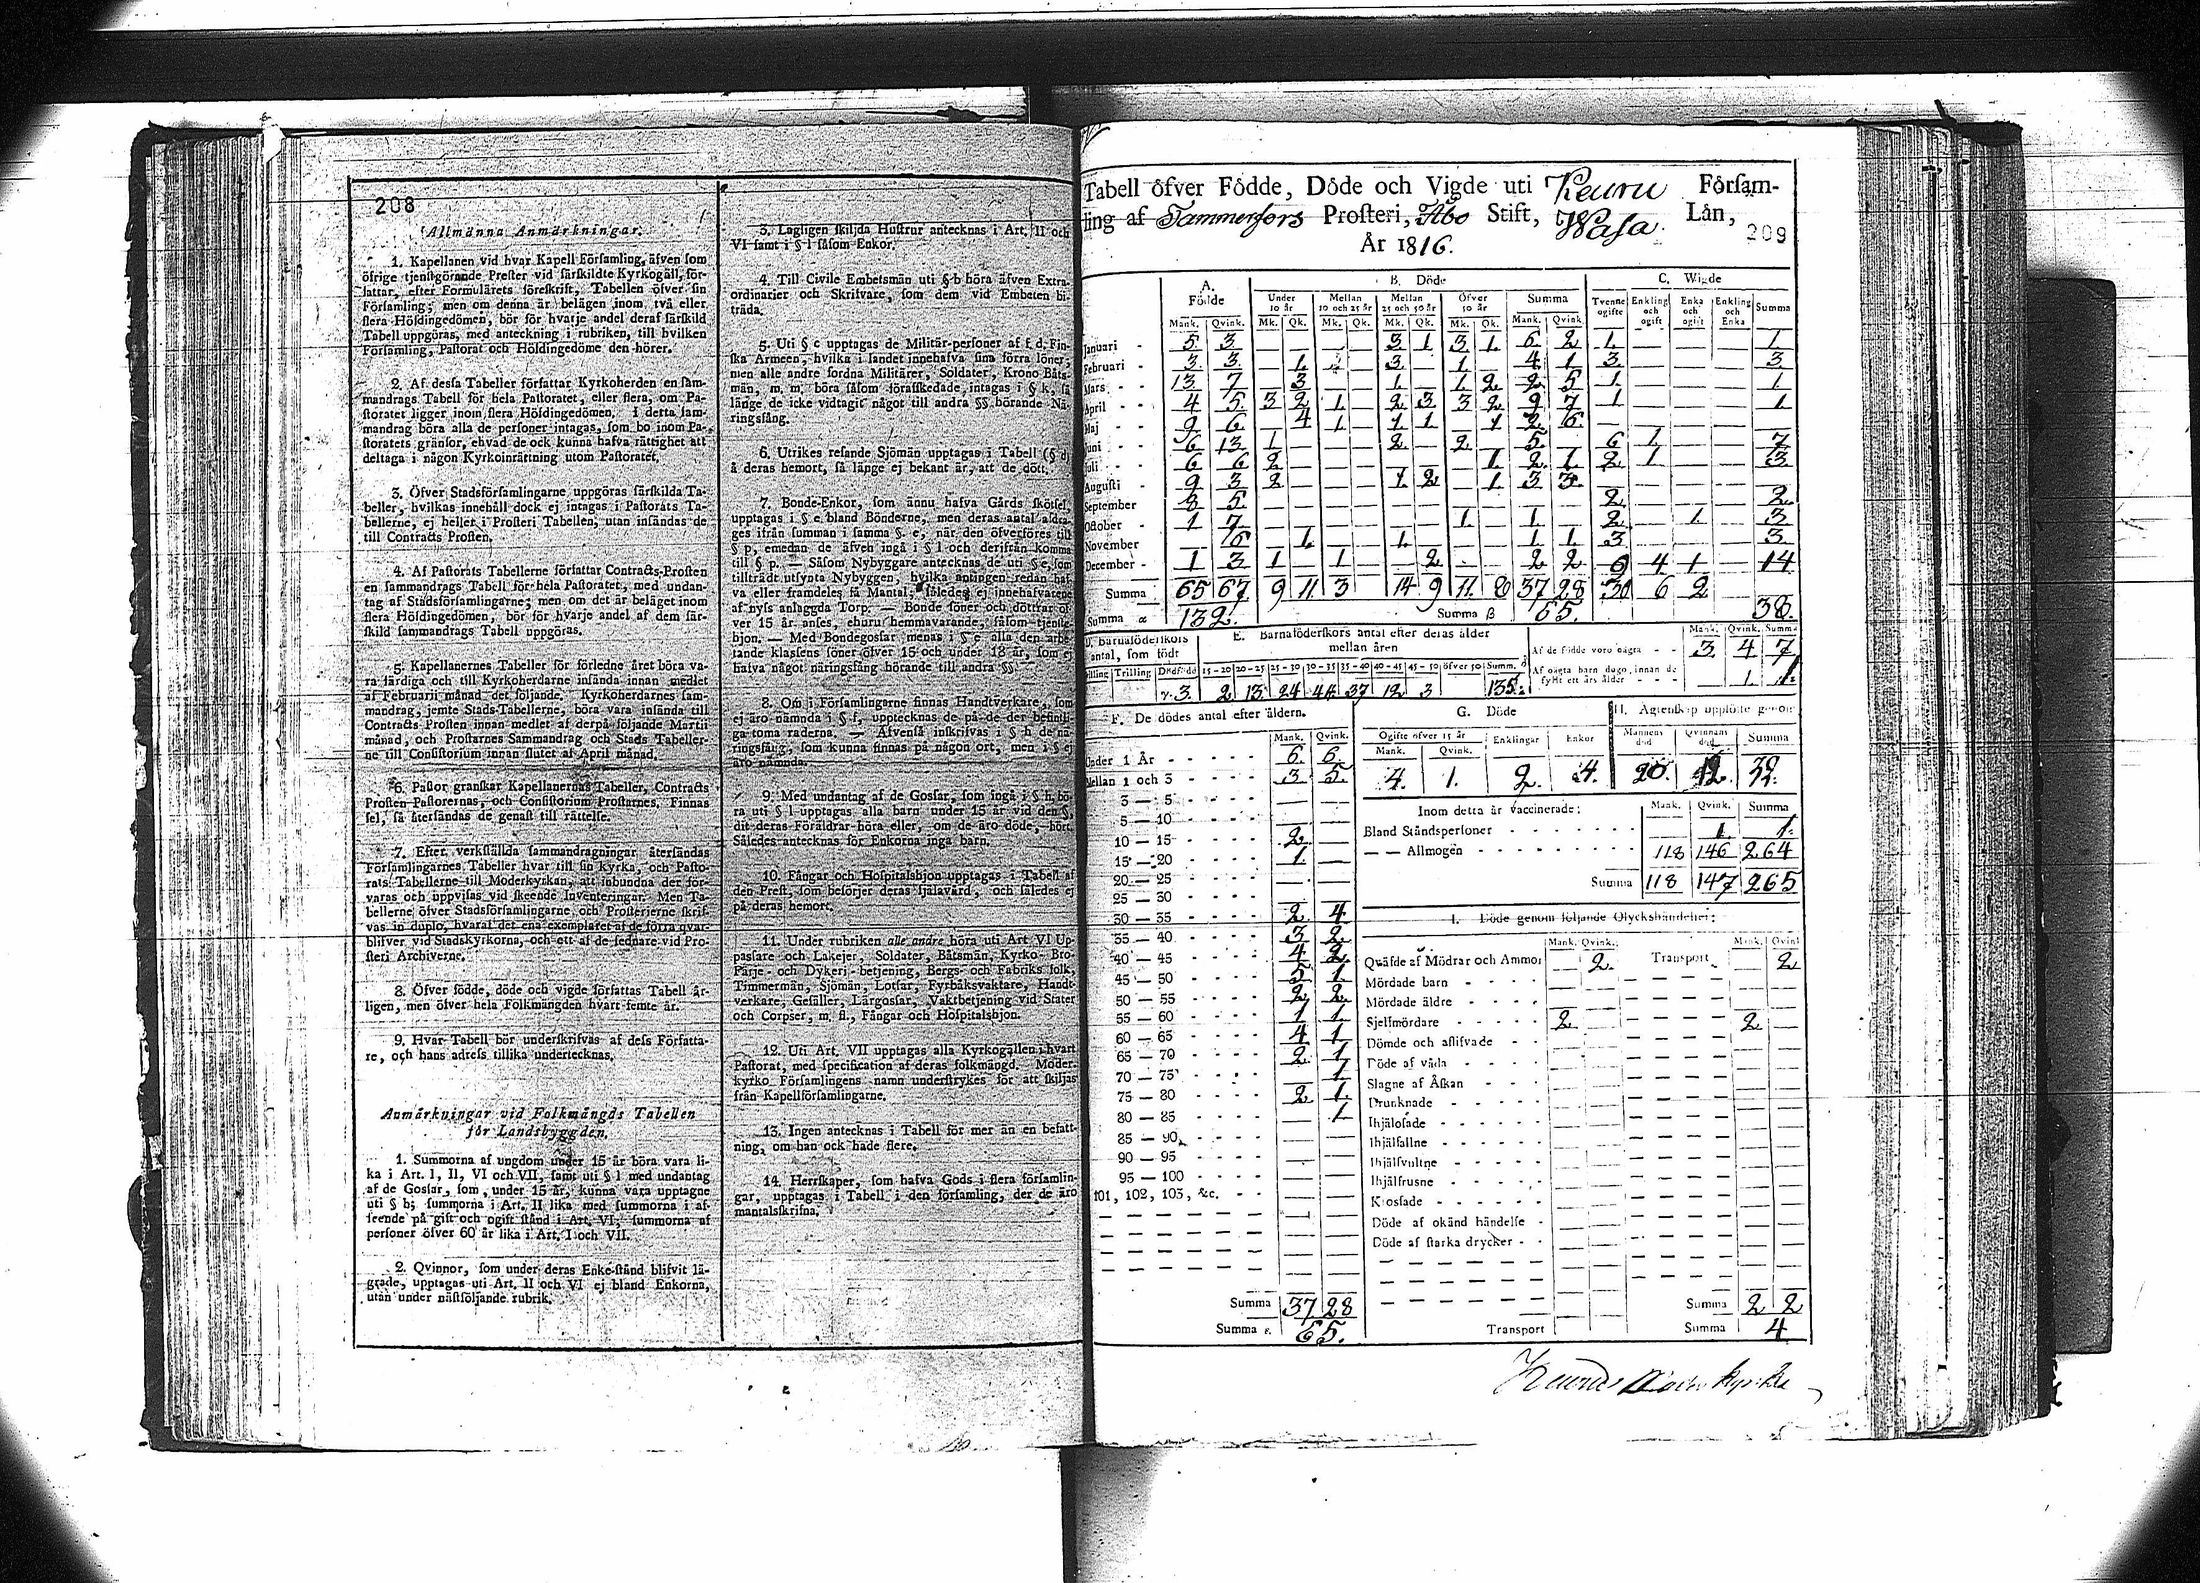 208
Allmänna Anmärkningar.
1. Kapellanen vid hvar Kapell Församling, äfven som
öfrige tjenstgörande Prester vid särskildte Kyrkogäll, för-
fattar, efter Formulärets föreskrift, Tabellen öfver sin
Församling; men om denna är belägen inom två eller
flera Höfdingedömen, bör för hvarje andel deraf särskild
Tabell uppgöras, med anteckning i rubriken, till hvilken
Församling, Pastorat och Höfdingedöme den hörer.
2. Af dessa Tabeller författar Kyrkoherden en sam-
mandrags Tabell för hela Pastoratet, eller flera, om Pa-
storatet ligger inom flera Höfdingedömen. I detta sam-
mandrag böra alla de personer intagas, som bo inom Pa-
storatets gränsor, ehvad de ock kunna hafva rättighet att
deltaga i någon Kyrkoinrättning utom Pastoratet.
3. Öfver Stadsförsamlingarne uppgöras särskilda Ta-
beller, hvilkas innehåll dock ej intagas i Pastorats Ta-
bellerne, ej heller i Prosteri Tabellen, utan insändas de
till Contracts Prosten.
4. Af Pastorats Tabellerne författar Contracts-Prosten
en sammandrags Tabell för hela Pastoratet, med undan-
tag af Stadsförsamlingarne; men om det är beläget inom
flera Höfdingedömen, bör för hvarje andel af dem sär-
skild sammandrags Tabell uppgöras.
5. Kapellanernes Tabeller för förledne året böra va-
ra färdiga och till Kyrkoherdarne insända innan medlet
af Februarii månad det följande. Kyrkoherdarnes sam-
mandrag, jemte Stads-Tabellerne, böra vara insända till
Contracts Prosten innan medlet af derpå följande Martii
månad, och Prostarnes Sammandrag och Stads Tabeller-
ne till Consistorium innan slutet af April månad.
6. Pastor granskar Kapellanernas Tabeller, Contracts
Prosten Pastorernas, och Consistorium Prostarnes. Finnas
fel, så återsändas de genast till rättelse.
7. Efter verkställda sammandragningar återsändas
Församlingarnes Tabeller hvar till sin kyrka, och Pasto-
rats Tabellerne till Moderkyrkan, att inbundna der för-
varas och uppvisas vid skeende Inventeringar. Men Ta-
bellerne öfver Stadsförsamlingarne och Prosterierne skrif-
vas in duplo, hvaraf det ena exemplaret af de förra qvar-
blifver vid Stadskyrkorna, och ett af de sednare vid Pro-
steri Archiverne.
8. Öfver födde, döde och vigde författas Tabell år-
ligen, men öfver hela Folkmängden hvart femte år.
9. Hvar Tabell bör underskrifvas af dess Författa-
re, och hans adress tillika undertecknas.
Anmärkningar vid Folkmängds Tabellen
för Landsbyggden.
1. Summorna af ungdom under 15 år böra vara li-
ka i Art. I, II, VI och VII, samt uti § l med undantag
af de Gossar, som, under 15 år, kunna vara upptagne
uti § b; summorna i Art. II lika med summorna i af-
seende på gift och ogift stånd i Art. VI; summorna af
personer öfver 60 år lika i Art. I och VII.
2. Qvinnor, som under deras Enke-stånd blifvit lä-
grade, upptagas uti Art. II och VI ej bland Enkorna,
utan under nästföljande rubrik.
3. Lagligen skiljda Hustrur antecknas i Art. II och
VI samt i § l såsom Enkor.
4. Till Civile Embetsmän uti § b höra äfven Extra-
ordinarier och Skrifvare, som dem vid Embeten bi-
träda.
5. Uti § c upptagas de Militär-personer af f. d. Fin-
ska Armeen, hvilka i landet innehafva sina förra löner;
men alle andre fordna Militärer, Soldater, Krono Båts-
män, m. m. böra såsom förafskedade intagas i § k, så
länge de icke vidtagit något till andra §§ hörande Nä-
ringsfång.
6. Utrikes resande Sjömän upptagas i Tabell (§ d)
å deras hemort, så länge ej bekant är, att de dött.
7. Bonde-Enkor, som ännu hafva Gårds skötsel,
upptagas i § e bland Bönderne, men deras antal afdra-
ges ifrån summan i samma § e, när den öfverföres till
§ p, emedan de äfven ingå i § l och derifrån komma
till § p. — Såsom Nybyggare antecknas de uti § e, som
tillträdt utsynta Nybyggen, hvilka antingen redan haf-
va eller framdeles få Mantal, således ej innehafvarene
af nyss anlaggda Torp. — Bonde söner och döttrar öf-
ver 15 år anses, ehuru hemmavarande, såsom tjenste-
hjon. — Med Bondegossar menas i § e alla den arbe-
tande klassens söner öfver 15 och under 18 år, som ej
hafva något näringsfång hörande till andra §§.
8. Om i Församlingarne finnas Handtverkare, som
ej äro nämnda i § f, upptecknas de på de der befintli-
ga toma raderna. — Äfvenså inskrifvas i § h de nä-
ringsfång, som kunna finnas på någon ort, men i § ej
äro nämnda.
9. Med undantag af de Gossar, som ingå i § h, bö-
ra uti § l upptagas alla barn under 15 år vid den §,
dit deras Föräldrar höra eller, om de äro döde, hört.
Således antecknas för Enkorna inga barn.
10. Fångar och Hospitalshjon upptagas i Tabell af
den Prest, som besörjer deras själavård, och således ej
på deras hemort.
11. Under rubriken alle andre höra uti Art VI Up-
passare och Lakejer, Soldater, Båtsmän, Kyrko- Bro-
Färje- och Dykeri- betjening, Bergs- och Fabriks folk,
Timmermän, Sjömän, Lotsar, Fyrbåksvaktare, Handt-
verkare, Gesäller, Lärgossar, Vaktbetjening vid Stater
och Corpser, m. fl., Fångar och Hospitalshjon.
12. Uti Art. VII upptagas alla Kyrkogällen i hvart
Pastorat, med specification af deras folkmängd. Moder-
kyrko Församlingens namn understrykes för att skiljas
från Kapellförsamlingarne.
13. Ingen antecknas i Tabell för mer än en befatt-
ning, om han ock hade flere.
14. Herrskaper, som hafva Gods i flera församlin-
gar, upptagas i Tabell i den församling, der de äro
mantalsskrifna.
Tabell öfver Födde, Döde och Vigde uti Keuru Församl-
ling af Tammerfors Prosteri, Åbo Stift, Wasa Län,
År 1816.
209
A. Födde B. Döde C. Wigde
Under 10 år Mellan 10 och 25 år Mellan 25 och 50 år Öfver 50 år Summa Tvenne ogifte Enkling och ogift Enka och ogift Enkling och Enka Summa
Mank. Qvink. Mk. Qk. Mk. Qk. Mk. Qk. Mk. Qk. Mank. Qvink
Januari 5 3 — — — — 3 1 3 1 6 2 1 — — — 1
Februari 3 3 — 1 — — 3 — 1 — 4 1 3 — — — 3
Mars 13 7 — 3 — — 1 — 1 2 2 5 1 — — — 1
April 4 5 3 2 1 — 2 3 3 2 9 7 1 — — — 1
Maj 9 6 — 4 1 — 1 1 — 1 2 6 —
Juni 6 13 1 — — — 2 — 2 — 5 — 6 1 — — 7
Juli 6 6 2 — — — — — — 1 2 1 2 1 — — 3
Augusti 9 3 2 — — — 1 2 — 1 3 3 — — — —
September 8 5 2 — — — 2
October 1 7 1 — 1 — 2 — 1 — 3
November — 6 — 1 — — 1 — — — 1 1 3 — — — 3
December 1 3 1 — 1 — — 2 — — 2 2 9 4 1 — 14
Summa 65 67 9 11 3 14 9 11 8 37 28 30 6 2
Summa α 132. Summa β 65. 38.
D. Barnaföderskors antal, som födt
Tvilling Trilling Dödfödd
3
E. Barnaföderskors antal efter deras ålder mellan åren
15-20 20-25 25-30 30-35 35-40 40-45 45-50 öfver 50 Summ.
2 13 24 44 37 12 3 135.
Mank. Qvink. Summa
Af de födde voro oägta - - 3 4 7
Af oägta barn dogo, innan de
fyllt ett års ålder - - - 1. 1.
F. De dödes antal efter åldern.
Mank. Qvink.
Under 1 År 6. 6.
Mellan 1 och 3 3 5.
3 — 5 — —
5 — 10 — —
10 — 15 2 —
15 — 20 1. —
20 — 25 — —
25 — 30 — —
30 — 35 2 4
35 — 40 3 2
40 — 45 4 2
45 — 50 5 1
50 — 55 2 2
55 — 60 1 1
60 — 65 4 1
65 — 70 2 1
70 — 75 1
75 — 80 2 1.
80 — 85 1
85 — 90
90 — 95
95 — 100
101, 102, 103, &c.
Summa 37 28
Summa ε. 65.
G. Döde
Ogifte öfver 15 år Enklingar Enkor
Mank. Qvink.
4. 1. 2. 4.
H. Ägtenskap upplöste genom
Mannens död Qvinnans död Summa
20. 12. 32.
Inom detta år vaccinerade: Mank. Qvink. Summa
Bland Ståndspersoner — 1. 1.
— — Allmogen 118 146 264
Summa 118 147 265
I. Döde genom följande Olyckshändelser:
Mank. Qvink. Mank. Qvink
Qväfde af Mödrar och Ammor — 2. Transport — 2
Mördade barn
Mördade äldre
Sjelfmördare 2 — 2 —
Dömde och aflifvade
Döde af våda
Slagne af Åskan
Drunknade
Ihjälfrusne
Krossade
Döde af okänd händelse
Döde af starka drycker
Summa 2 2
Transport Summa 4
Keuru Moder kyrka